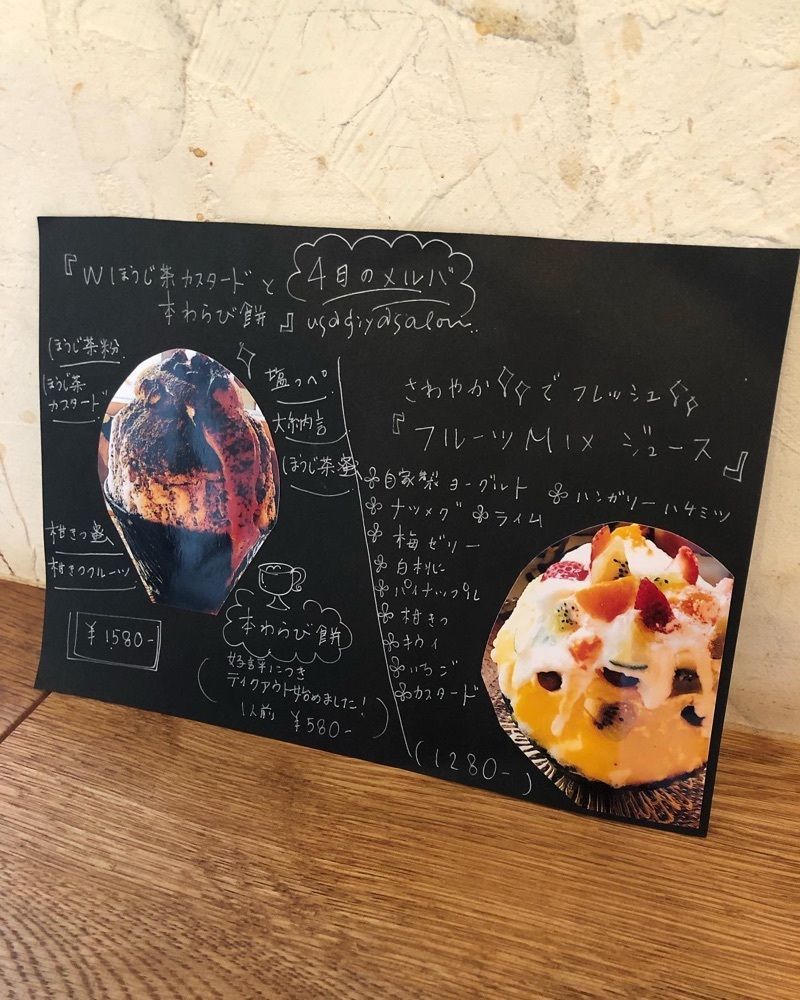 『Wほうじ茶カスタードと
本わらび餅』
4日のメルバ
usagiyasalon..
ほうじ茶粉
ほうじ茶
カスタード
柑きつ蜜
柑きつフルーツ
¥1580-
塩っぺ
大納言
ほうじ茶蜜
本わらび餅
好評につき
テイクアウト始めました!
1人前 ¥580-
さわやかでフレッシュ
『フルーツMixジュース』
自家製ヨーグルト ハンガリーハチミツ
ナツメグ ライム
梅ゼリー
白桃に
パイナップル
柑きつ
キウイ
いちご
カスタード
(1280-)